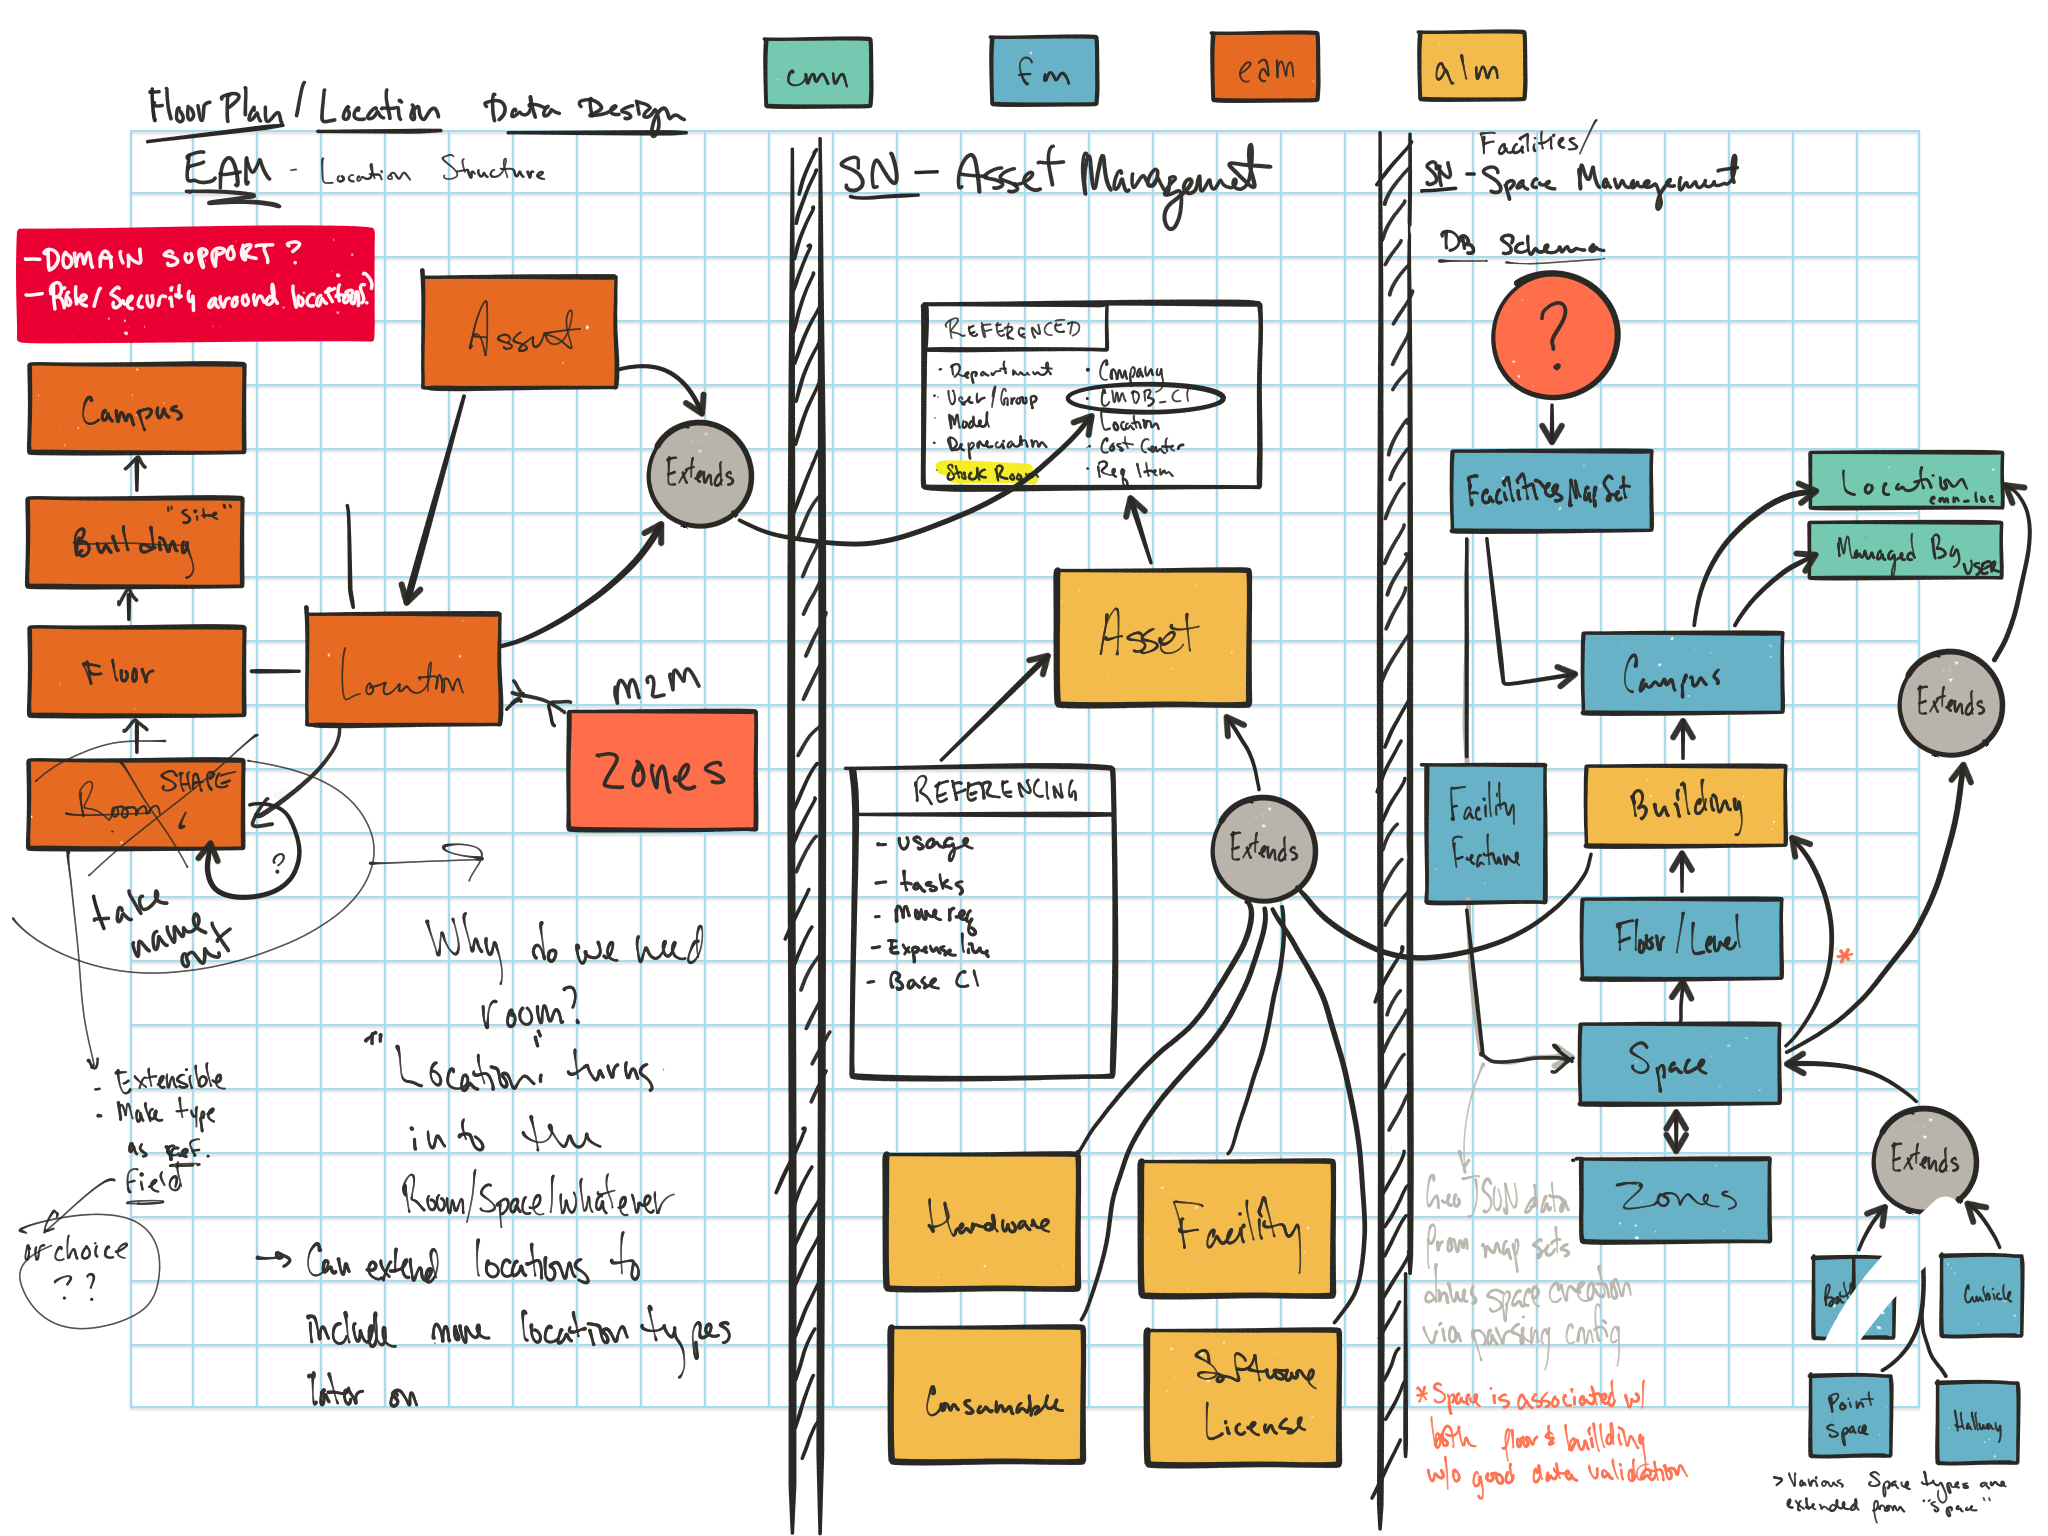 cmn
fm
eam
alm
Floor Plan / Location Data Design
EAM - Location Structure
- DOMAIN SUPPORT?
- Role/Security around locations?
Campus
"Site"
Building
Floor
Room
SHAPE
?
take
name
out
- Extensible
- Make type
as ref.
field
or choice
? ?
Assut
Extends
Location
M2M
Zones
Why do we need
room?
"Location" turns
into the
Room/Space/Whatever
→ Can extend locations to
include more location types
later on
SN - Asset Management
REFERENCED
· Department
· User/Group
· Model
· Depreciation
· Stock Room
· Company
· CMDB_CI
· Location
· Cost Center
· Req Item
Asset
REFERENCING
- usage
- tasks
- Move req
- Expense line
- Base CI
Extends
Hardware
Facility
Consumable
Software
License
Facilities/
SN - Space Management
DB Schema
?
Facilities Map Set
Location
cmn_loc
Managed By
USER
Campus
Extends
Building
Facility
Feature
Floor/Level
*
Space
Zones
Extends
Cubicle
Point
Space
Hallway
GeoJSON data
from map sets
drives space creation
via parsing config
* Space is associated w/
both floor & building
w/o good data validation
> Various Space types are
extended from "Space"